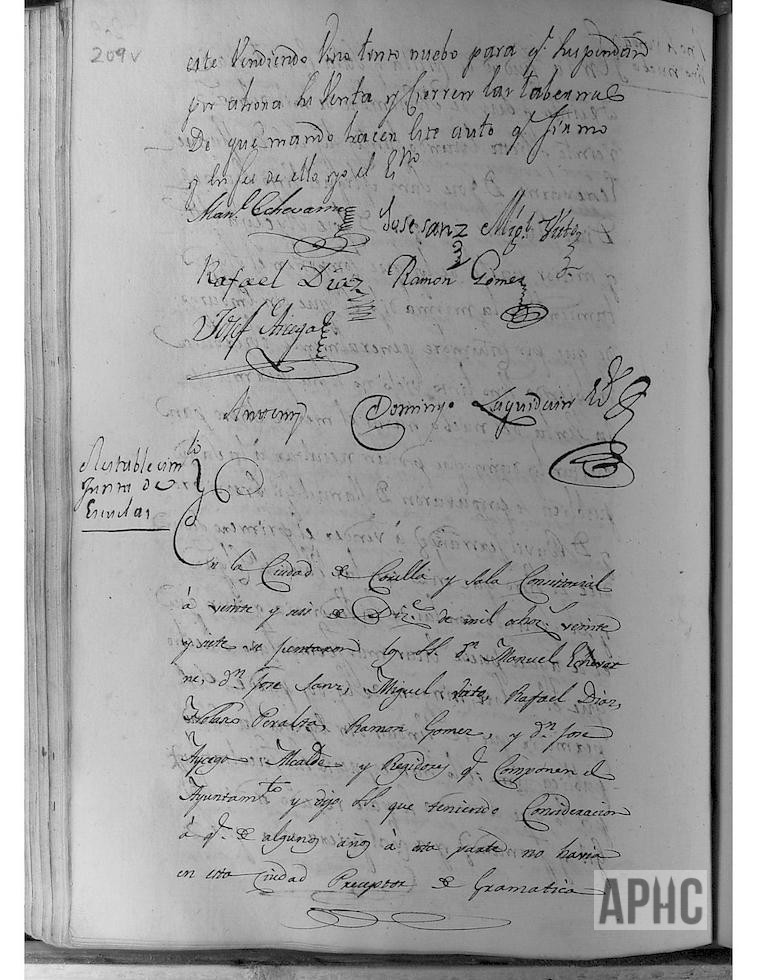 209v
este Vendiendo Vino tinto nuebo para q.e suspendan
por ahora su Venta y Cierren las tabernas
De que mando hacer este auto q.e firmo
y en fee de ello yo el Es.no
Man.l Echevarrne
Jose sanz Mig.l
Rafael Diaz Ramon Gomez
Josef Ayego
Antemy Domingo Laquidain
Restablecim.to
Junta de
Escuelas
En la Ciudad de Corella y Sala Consistorial
à veinte y seis de Diz.e de mil ochoz.s veinte
y siete se juntaron los SS. d.n Manuel Echevar
ne, d.n Jose Sanz, Miguel Rafael Diaz,
Peralta, Ramon Gomez, y d.n Jose
Ayego Alcalde y Regidores q.e Componen el
Ayuntam.to y dijo SS. que teniendo Consideracion
à q.e de algunos años à esta parte no havia
en esta Ciudad Preceptor de Gramatica
APHC